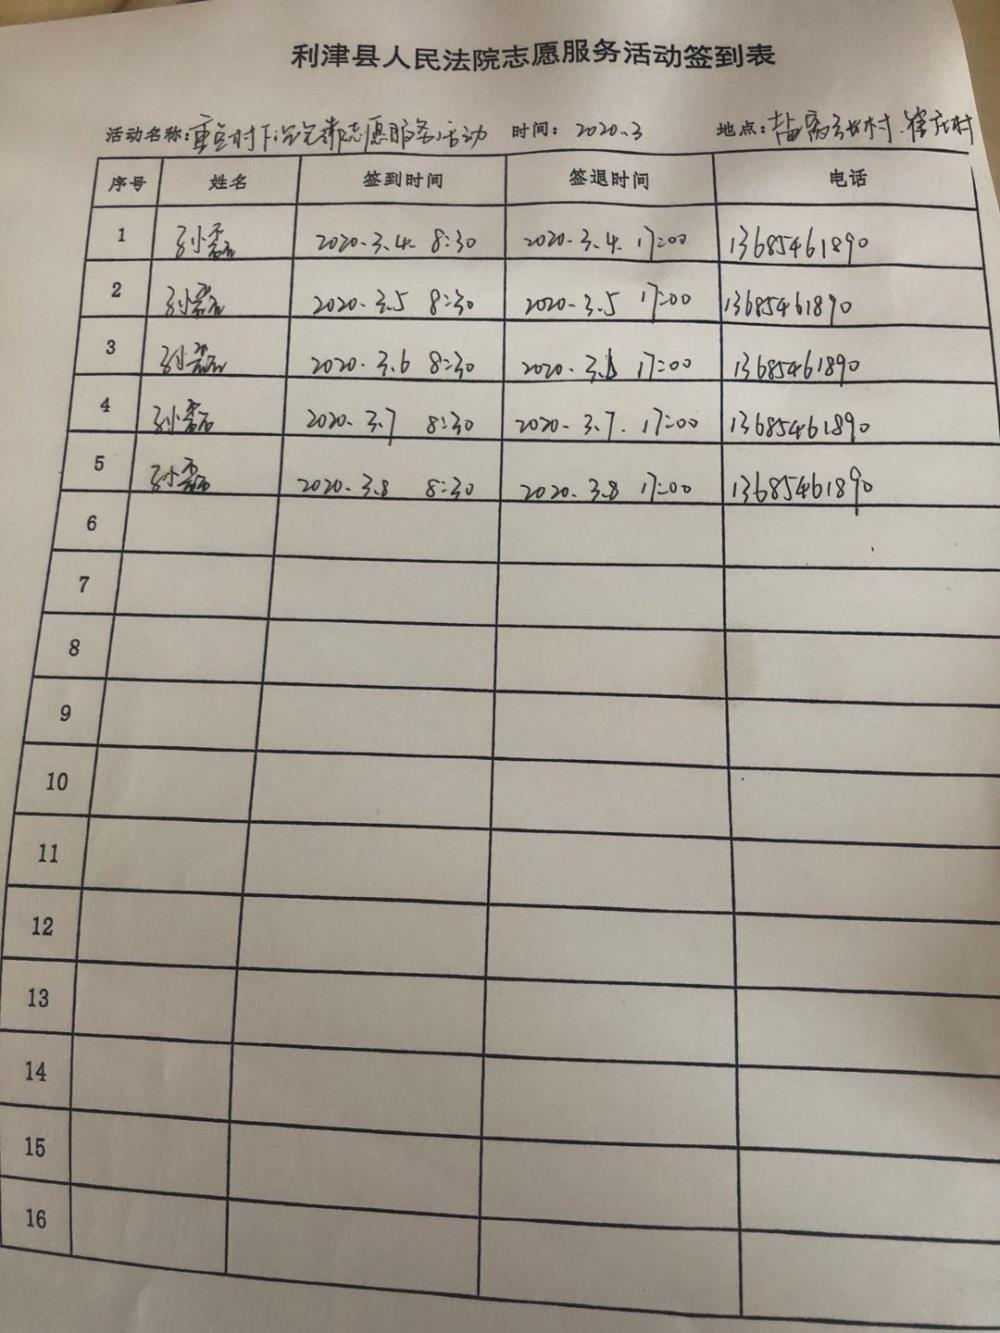 利津县人民法院志愿服务活动签到表
活动名称: 重点村下沉宅排志愿服务活动 时间: 2020.3 地点: 盐窝 村、崔庄村
序号 姓名 签到时间 签退时间 电话
1 孙磊 2020.3.4 8:30 2020.3.4 17:00 13685461890
2 孙磊 2020.3.5 8:30 2020.3.5 17:00 13685461890
3 孙磊 2020.3.6 8:30 2020.3.6 17:00 13685461890
4 孙磊 2020.3.7 8:30 2020.3.7 17:00 13685461890
5 孙磊 2020.3.8 8:30 2020.3.8 17:00 13685461890
6
7
8
9
10
11
12
13
14
15
16